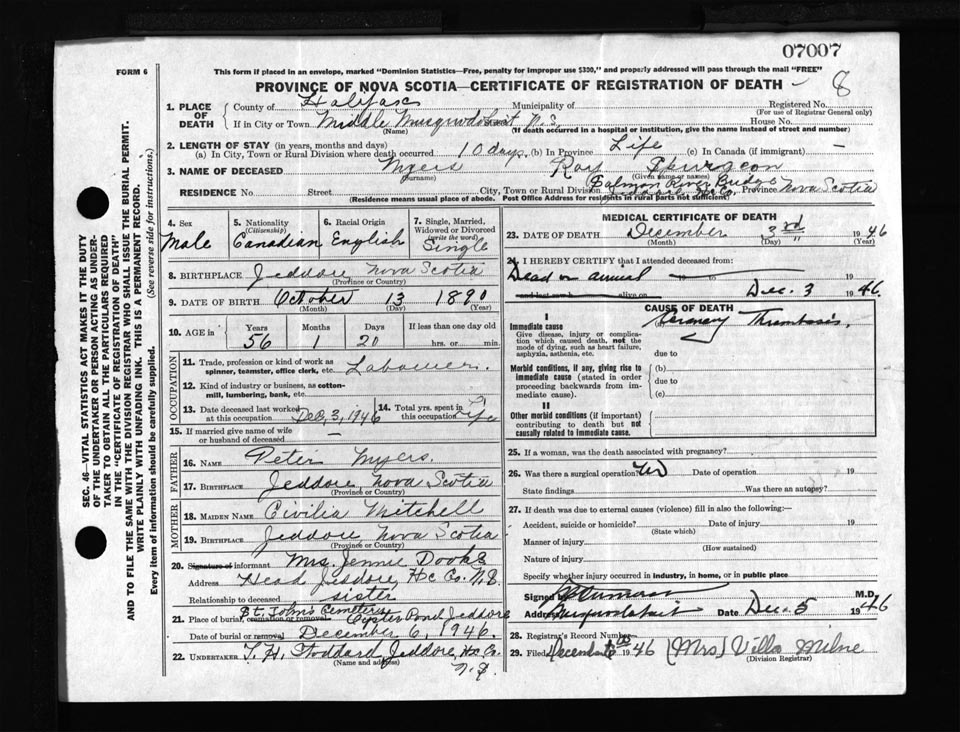 07007
8
FORM 6
This form if placed in an envelope, marked "Dominion Statistics—Free, penalty for improper use $300," and properly addressed will pass through the mail "FREE"
PROVINCE OF NOVA SCOTIA—CERTIFICATE OF REGISTRATION OF DEATH
SEC. 46—VITAL STATISTICS ACT MAKES IT THE DUTY
OF THE UNDERTAKER OR PERSON ACTING AS UNDER-
TAKER TO OBTAIN ALL THE PARTICULARS REQUIRED
IN THE "CERTIFICATE OF REGISTRATION OF DEATH"
AND TO FILE THE SAME WITH THE DIVISION REGISTRAR WHO SHALL ISSUE THE BURIAL PERMIT.
WRITE PLAINLY WITH UNFADING INK. THIS IS A PERMANENT RECORD.
Every item of information should be carefully supplied. (See reverse side for instructions.)
1. PLACE OF DEATH
County of Halifax Municipality of Registered No.
(For use of Registrar General only)
If in City or Town Middle Musquodoboit N.S. House No.
(Name) (If death occurred in a hospital or institution, give the name instead of street and number)
2. LENGTH OF STAY (in years, months and days)
(a) In City, Town or Rural Division where death occurred 10 days (b) In Province Life (c) In Canada (if immigrant) —
3. NAME OF DECEASED Myers Ray
(Surname) (Given name or names)
Salmon River Bridge
RESIDENCE No. Street City, Town or Rural Division Jeddore Hx Co. Province Nova Scotia
(Residence means usual place of abode. Post Office Address for residents in rural parts not sufficient)
4. Sex Male
5. Nationality (Citizenship) Canadian
6. Racial Origin English
7. Single, Married, Widowed or Divorced (write the word) Single
8. BIRTHPLACE Jeddore Nova Scotia
(Province or Country)
9. DATE OF BIRTH October 13 1890
(Month) (Day) (Year)
10. AGE in Years 56 Months 1 Days 20 If less than one day old hrs. or min.
OCCUPATION
11. Trade, profession or kind of work as spinner, teamster, office clerk, etc. Labourer.
12. Kind of industry or business, as cotton-mill, lumbering, bank, etc.
13. Date deceased last worked at this occupation Dec, 3, 1946
14. Total yrs. spent in this occupation Life
15. If married give name of wife or husband of deceased —
FATHER
16. NAME Peter Myers.
17. BIRTHPLACE Jeddore, Nova Scotia
(Province or Country)
MOTHER
18. MAIDEN NAME Civilia Mitchell
19. BIRTHPLACE Jeddore, Nova Scotia
(Province or Country)
20. Signature of informant Mrs. Jennie Dooks
Address Head Jeddore, Hx. Co. N.S.
Relationship to deceased sister
St. John's Cemetery
21. Place of burial, cremation or removal Oyster Pond Jeddore
Date of burial or removal December 6, 1946.
22. UNDERTAKER T. H. Stoddard Jeddore, Hx. Co.
(Name and address) N.S.
MEDICAL CERTIFICATE OF DEATH
23. DATE OF DEATH December 3rd 1946
(Month) (Day) (Year)
24. I HEREBY CERTIFY that I attended deceased from:
Dead on arrival 19 to 19
and last saw h alive on Dec. 3 1946.
CAUSE OF DEATH
I
Immediate cause Coronary Thrombosis.
Give disease, injury or complication which caused death, not the mode of dying, such as heart failure, asphyxia, asthenia, etc.
due to
Morbid conditions, if any, giving rise to immediate cause (stated in order proceeding backwards from immediate cause)
(b)
due to
(c)
II
Other morbid conditions (if important) contributing to death but not causally related to immediate cause.
25. If a woman, was the death associated with pregnancy?
26. Was there a surgical operation? No Date of operation 19
State findings Was there an autopsy?
27. If death was due to external causes (violence) fill in also the following:—
Accident, suicide or homicide? Date of injury 19
(State which)
Manner of injury
(How sustained)
Nature of injury
Specify whether injury occurred in industry, in home, or in public place
Signed by M.D.
Address Musquodoboit Date Dec. 5 1946
28. Registrar's Record Number
29. Filed December 1946 (Mrs) Villa Milne
(Division Registrar)